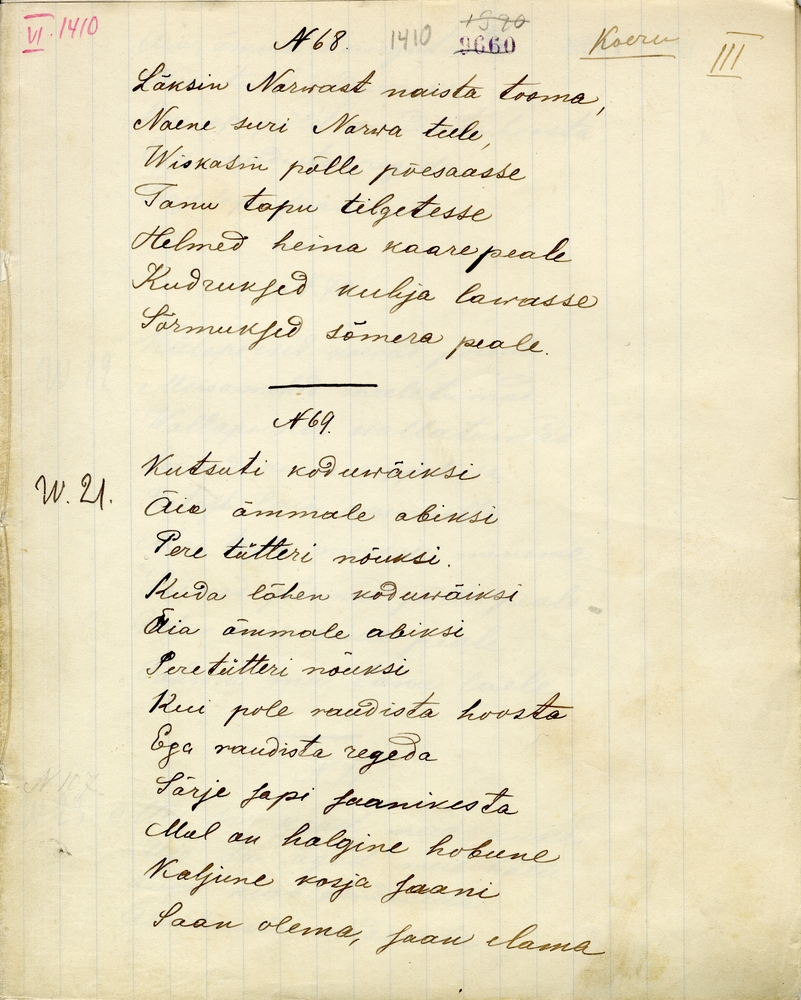 VI. 1410
N 68.
1410
1590
9660
Koeru
III
Läksin Narwast naista tooma,
Naene suri Narwa teele,
Wiskasin põlle põesaasse
Tanu tapu tilgetesse
Helmed heina kaare peale
Kudruksed kulija lawasse
Sõrmuksed sõmera peale.
N 69.
W. 21.
Kutsuti koduwäiksi
Äia ämmale abiksi
Pere tütteri nõuksi.
Kuda lähen koduwäiksi
Äia ämmale abiksi
Peretütteri nõuksi
Kui pole raudista hoosta
Ega raudista regeda
Särje sapi saanikesta
Mul on halgine hobune
Kaljune kosja saani
N 107.
Saan olema, saan elama